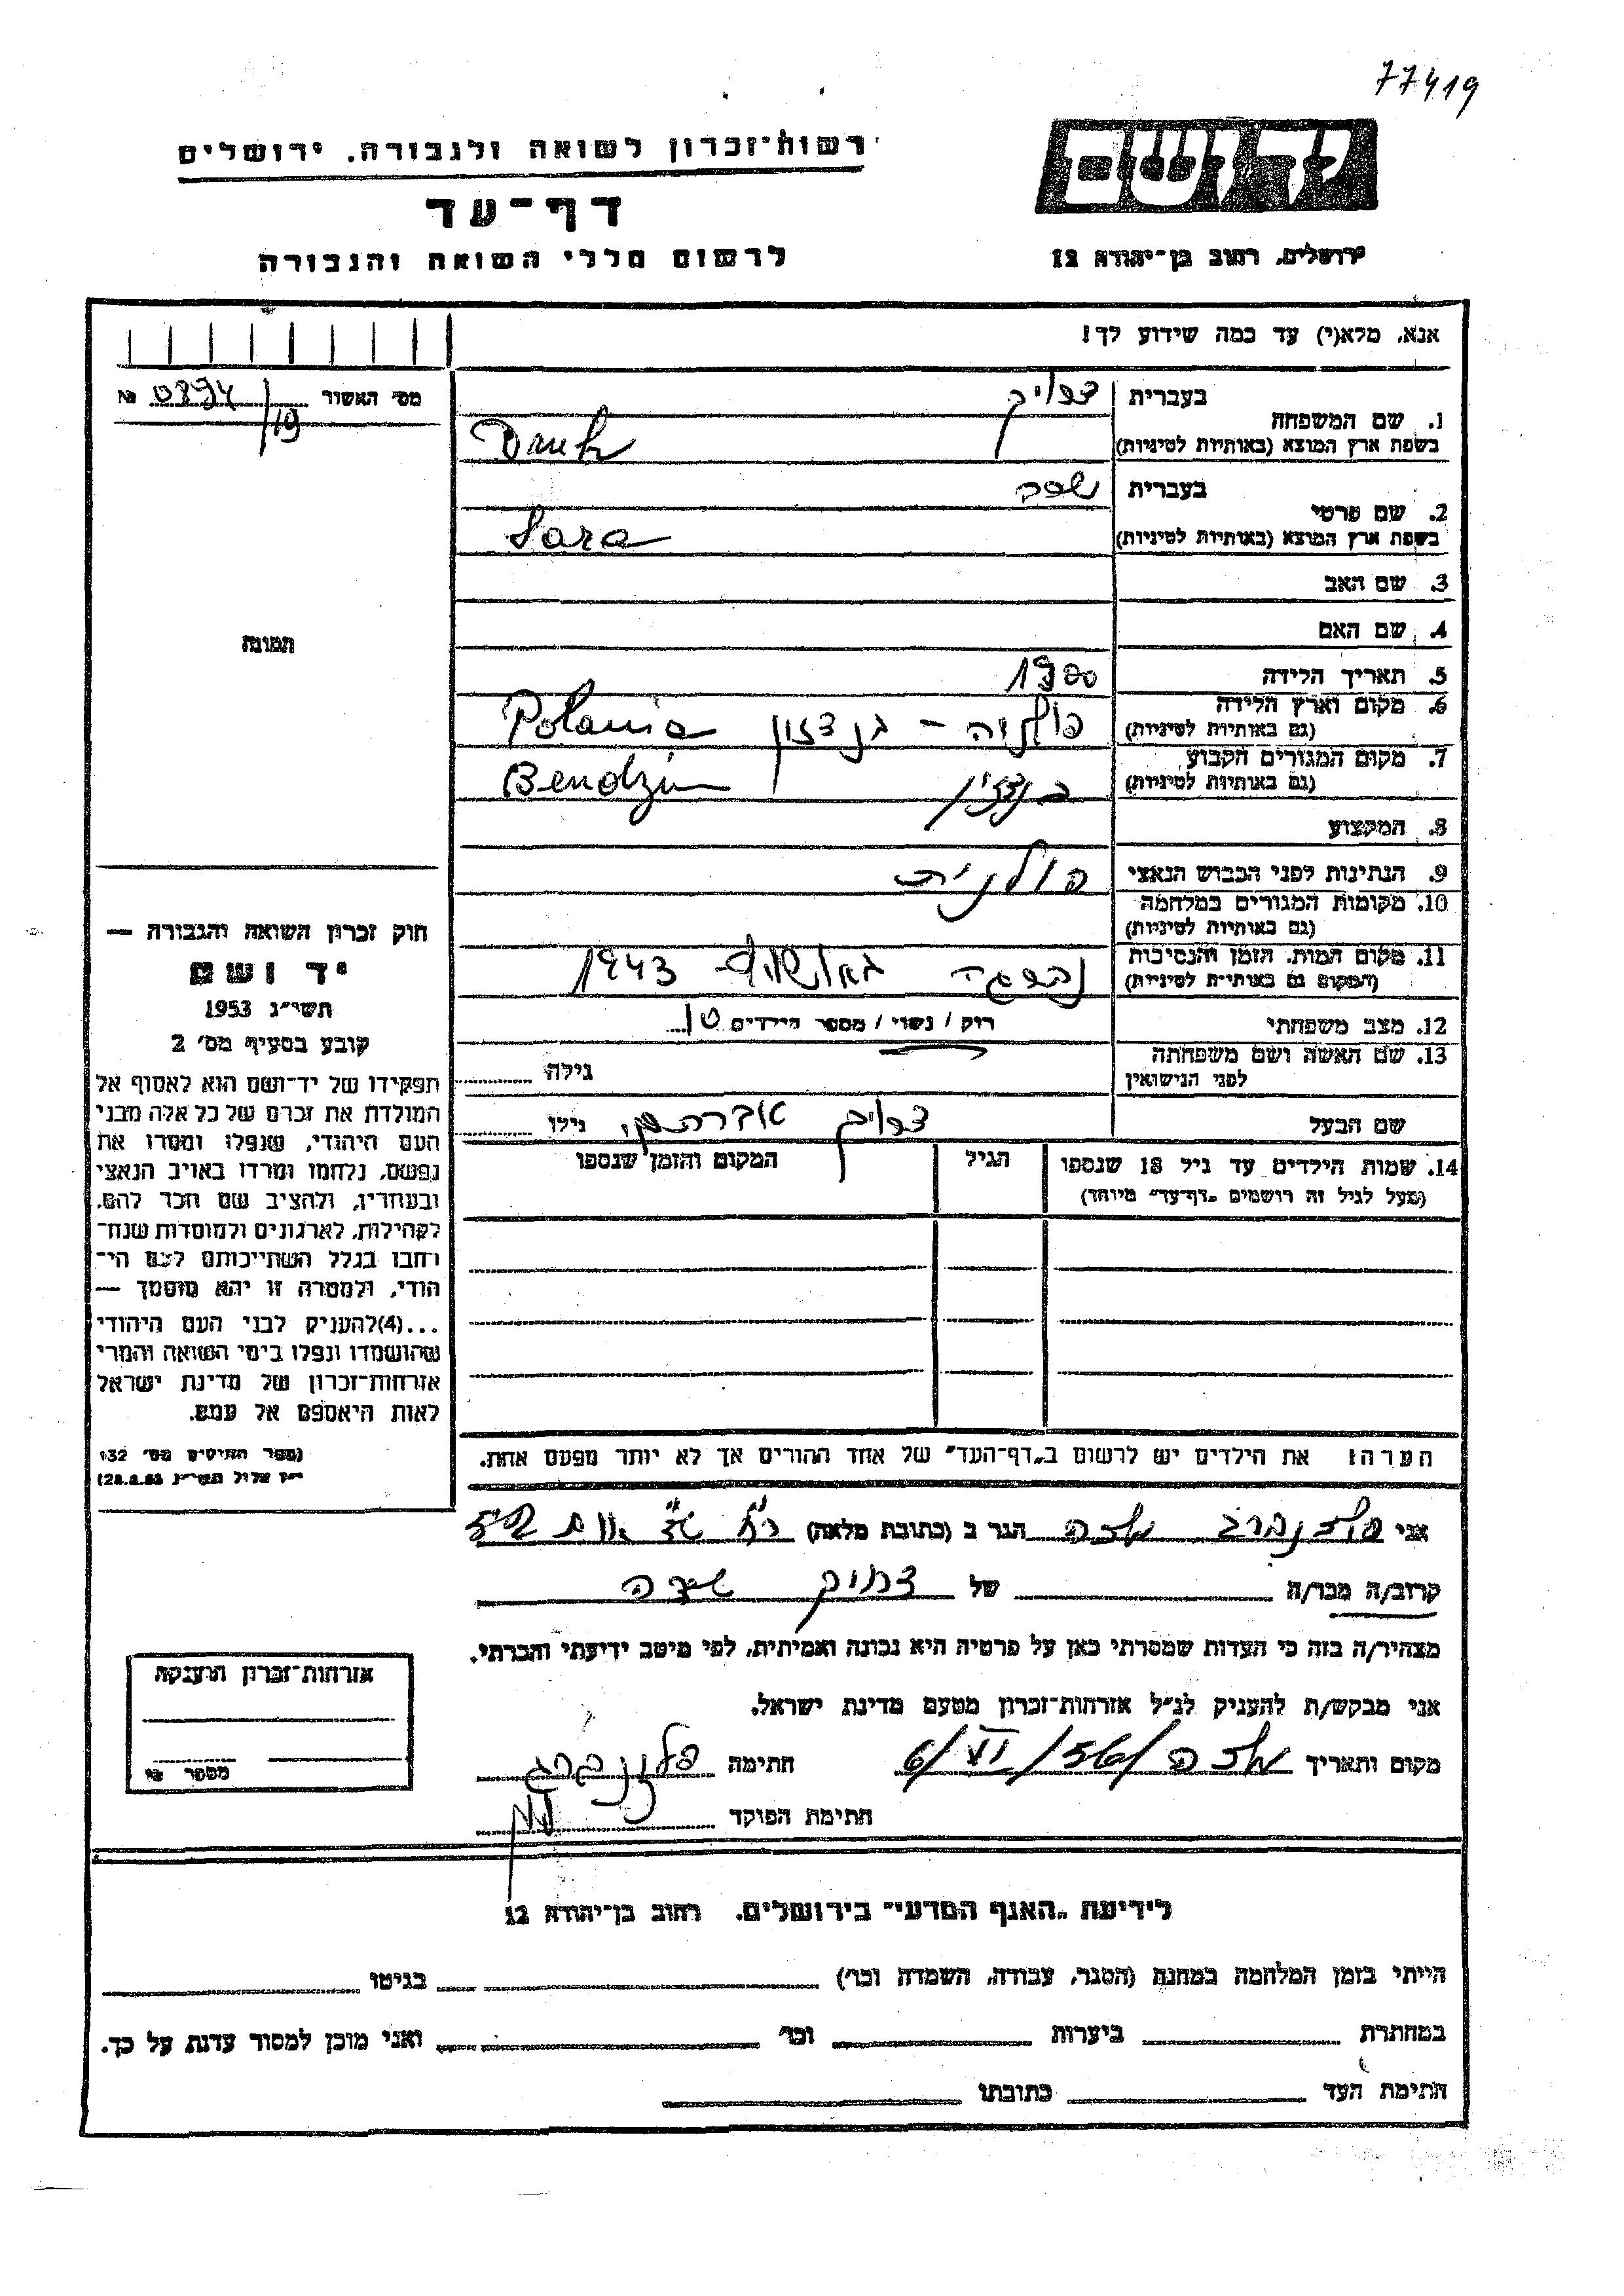 77419
רשות־זכרון לשואה ולגבורה, ירושלים
יד ושם
דף־עד
לרשום חללי השואה והגבורה
ירושלים, רחוב בן־יהודה 12
אנא, מלא(י) עד כמה שידוע לך!
מס׳ האשור 0894/19 №
1. שם המשפחה
בעברית דרוק
בשפת ארץ המוצא (באותיות לטיניות) Druk
2. שם פרטי
בעברית שרה
בשפת ארץ המוצא (באותיות לטיניות) Sara
3. שם האב
4. שם האם
תמונה
5. תאריך הלידה 1900
6. מקום וארץ הלידה
(גם באותיות לטיניות) פולניה – Polania
7. מקום המגורים הקבוע
(גם באותיות לטיניות) בנדזין Bendzin
8. המקצוע
9. הנתינות לפני הכבוש הנאצי פולנית
10. מקומות המגורים במלחמה
(גם באותיות לטיניות)
11. מקום המות, הזמן והנסיבות
(המקום גם באותיות לטיניות) נהרגה באושויץ 1943
12. מצב משפחתי רוק / נשוי / מספר הילדים
13. שם האשה ושם משפחתה
לפני הנישואין גילה
שם הבעל דרוק אברהם גילו
14. שמות הילדים עד גיל 18 שנספו
(מעל לגיל זה רושמים "דף־עד" מיוחד)
הגיל
המקום והזמן שנספו
הערה: את הילדים יש לרשום ב"דף־העד" של אחד ההורים אך לא יותר מפעם אחת.
חוק זכרון השואה והגבורה —
יד ושם
תשי״ג 1953
קובע בסעיף מס׳ 2
תפקידו של יד־ושם הוא לאסוף אל
המולדת את זכרם של כל אלה מבני
העם היהודי, שנפלו ומסרו את
נפשם, נלחמו ומרדו באויב הנאצי
ובעוזריו, ולהציב שם וזכר להם,
לקהילות, לארגונים ולמוסדות שנח־
רבו בגלל השתייכותם לעם הי־
הודי, ולמטרה זו יהא מוסמך —
...(4)להעניק לבני העם היהודי
שהושמדו ונפלו בימי השואה והמרי
אזרחות־זכרון של מדינת ישראל
לאות היאספם אל עמם.
(ספר החוקים מס׳ 132
י״ז אלול תשי״ג 28.8.53)
אני הגר ב (כתובת מלאה)
קרוב/ה מכר/ה של דרוק שרה
מצהיר/ה בזה כי העדות שמסרתי כאן על פרטיה היא נכונה ואמיתית, לפי מיטב ידיעתי והכרתי.
אני מבקש/ת להעניק לנ״ל אזרחות־זכרון מטעם מדינת ישראל.
מקום ותאריך 6/VI/56 חתימה
חתימת הפוקד
אזרחות־זכרון הוענקה
מספר №
לידיעת "האגף המדעי" בירושלים, רחוב בן־יהודה 12
הייתי בזמן המלחמה במחנה (הסגר, עבודה, השמדה וכו׳) בגיטו
במחתרת ביערות וכו׳ ואני מוכן למסור עדות על כך.
חתימת העד כתובתו